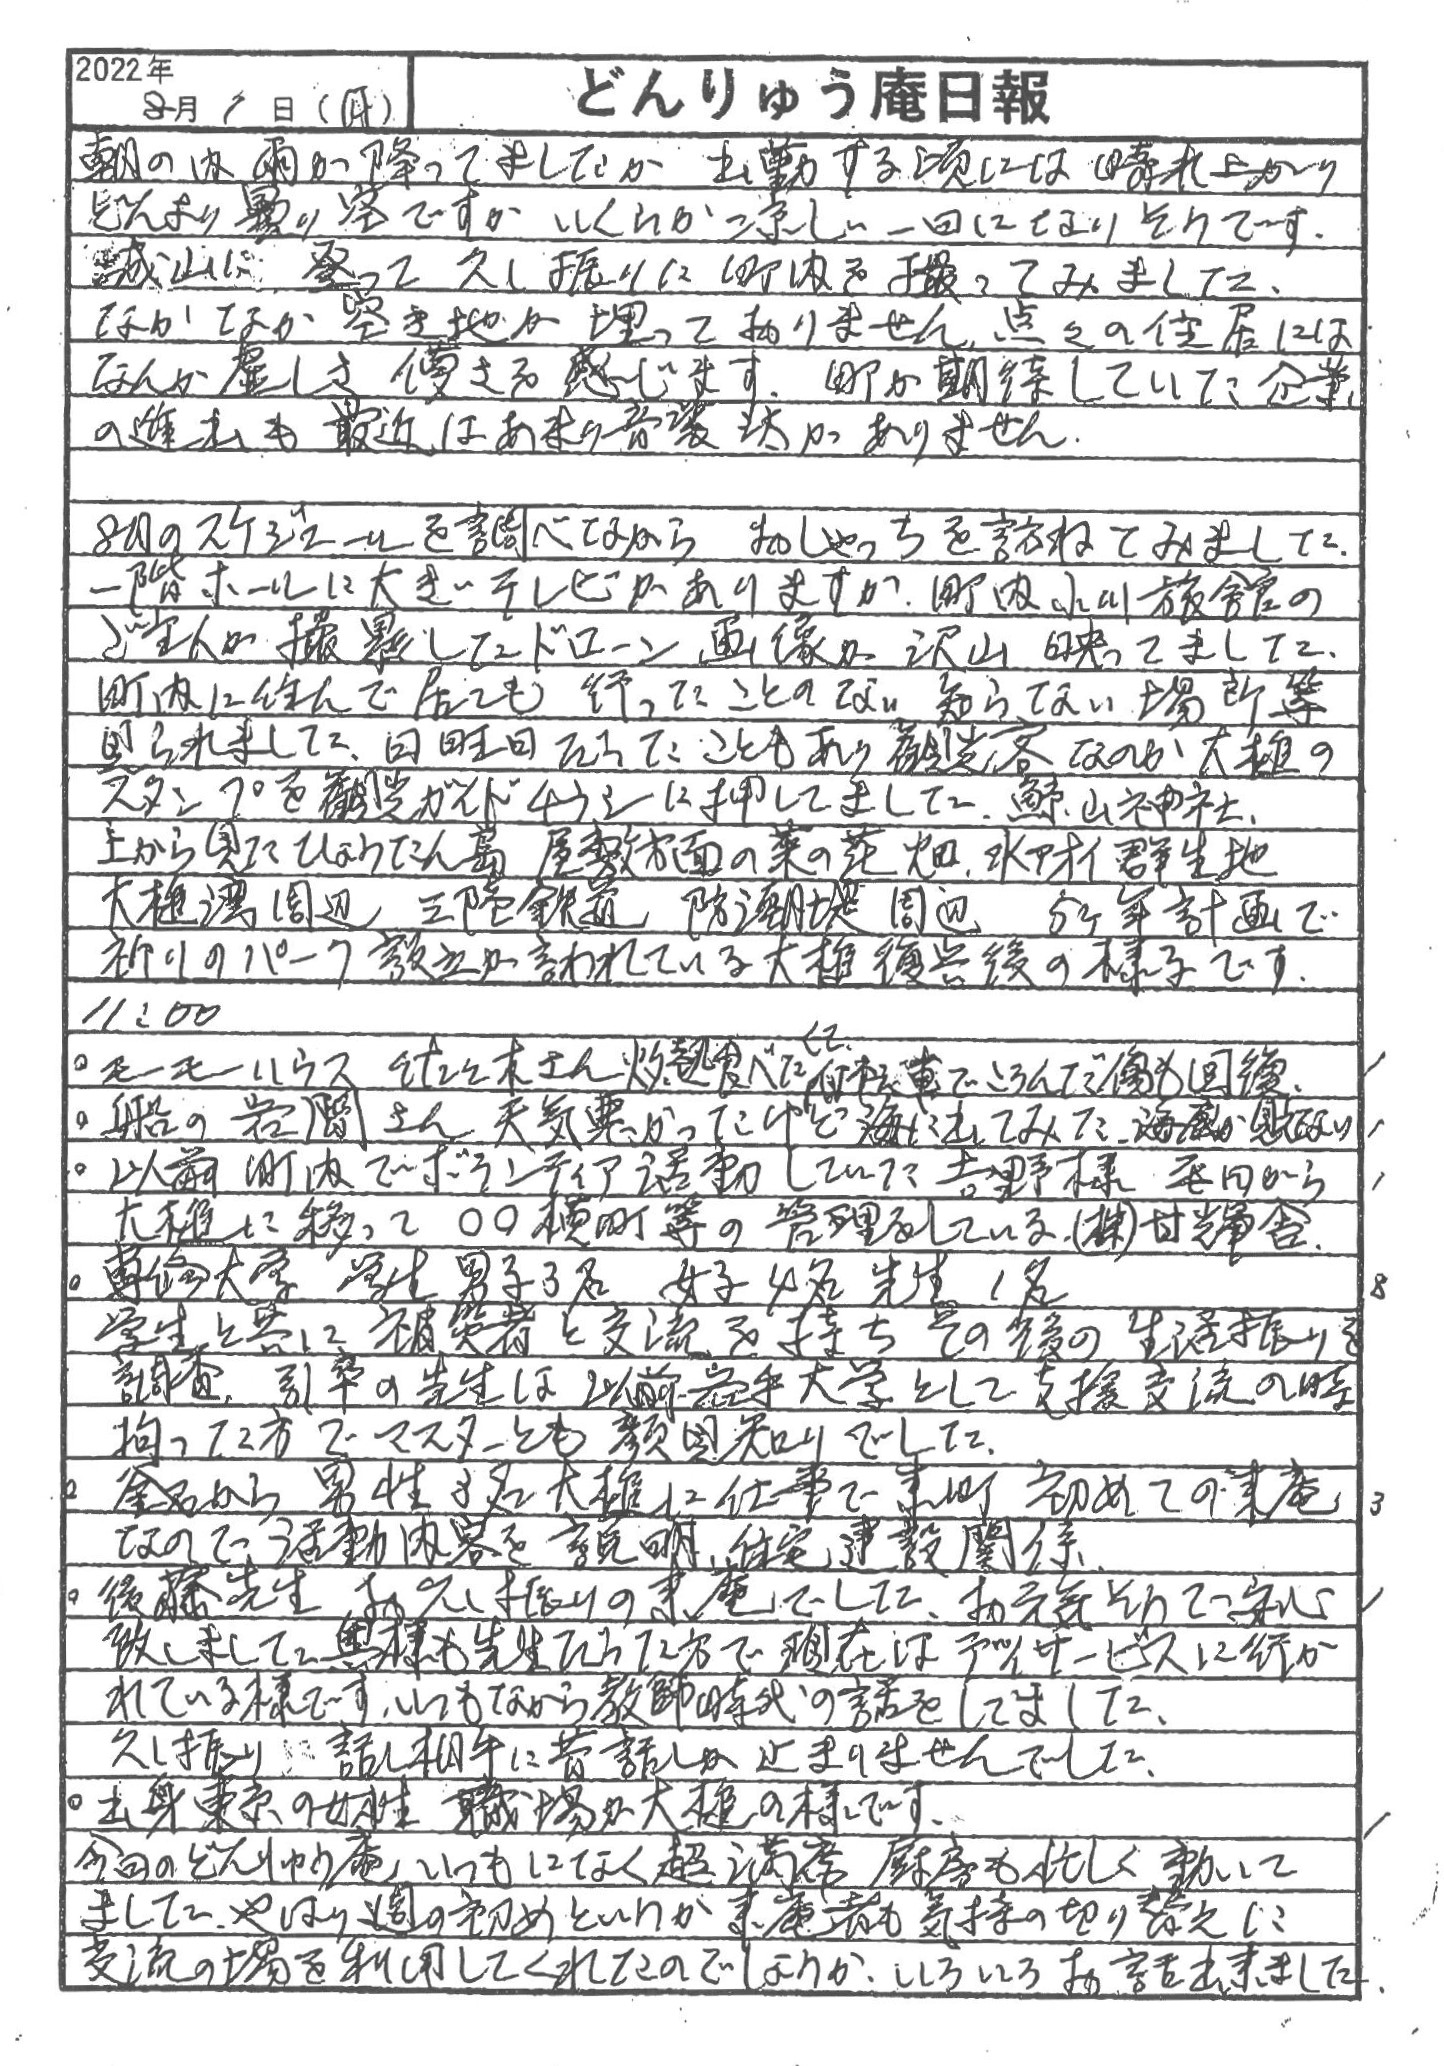 2022年
8月1日(月)
どんりゅう庵日報
朝の内雨が降ってましたが 出勤する頃には晴れ上がり
どんより曇り空ですが いくらか涼しい一日になりそうです.
城山に登って久し振りに町内を撮ってみました、
なかなか空き地が埋っておりません、点々の住居には
なんか虚しさ 儚さを感じます. 町が期待していた企業
の進出も最近はあまり音沙汰がありません.
8月のスケジュールを調べながら おしゃっちを訪ねてみました.
一階ホールに大きいテレビがありますが、町内小川旅館の
ご主人が撮影したドローン画像が沢山映ってました、
町内に住んで居ても 行ったことのない知らない場所等
見られました、日曜日だったこともあり観光客なのか大槌の
スタンプを観光ガイドチラシに押してました、鯨山神社、
上から見たひょうたん島 屋敷方面の菜の花畑、ミズアオイ群生地
大槌湾周辺、三陸鉄道、防潮堤周辺 5ヶ年計画で
祈りのパーク設立が言われている大槌復興後の様子です.
11:00
○モーモーハウス 佐々木さん 灼熱食べたくて 自転車でころんだ傷も回復、 1
○船の岩間さん 天気悪かったけど海に出てみた、海底が見えない 1
○以前町内でボランティア活動していた吉野様 元日から 1
大槌に移って 〇〇横町等の管理をしている、(株)甘輝舎.
○専修大学 学生 男子3名 女子4名 先生 1名 8
学生と共に被災者と交流を持ち その後の生活振りを
調査、引率の先生は以前岩手大学として支援交流の時
拘った方でマスターとも顔見知りでした、
○釜石から 男性3名 大槌に仕事で来町 初めての来庵 3
なので 活動内容を説明、住宅建設関係、
○後藤先生 お久し振りの来庵でした、お元気そうで安心 1
致しました、奥様も先生だった方で現在はデイサービスに行か
れている様です、いつもながら教師時代の話をしてました、
久し振り 話し相手に昔話しが止まりませんでした、
○出身東京の女性 職場が大槌の様です. 1
今日のどんりゅう庵、いつもになく超満席 厨房も忙しく動いて
ました、やはり週の初めというか来庵者も気持の切り替えに
交流の場を利用してくれたのでしょうか、いろいろお話出来ました.